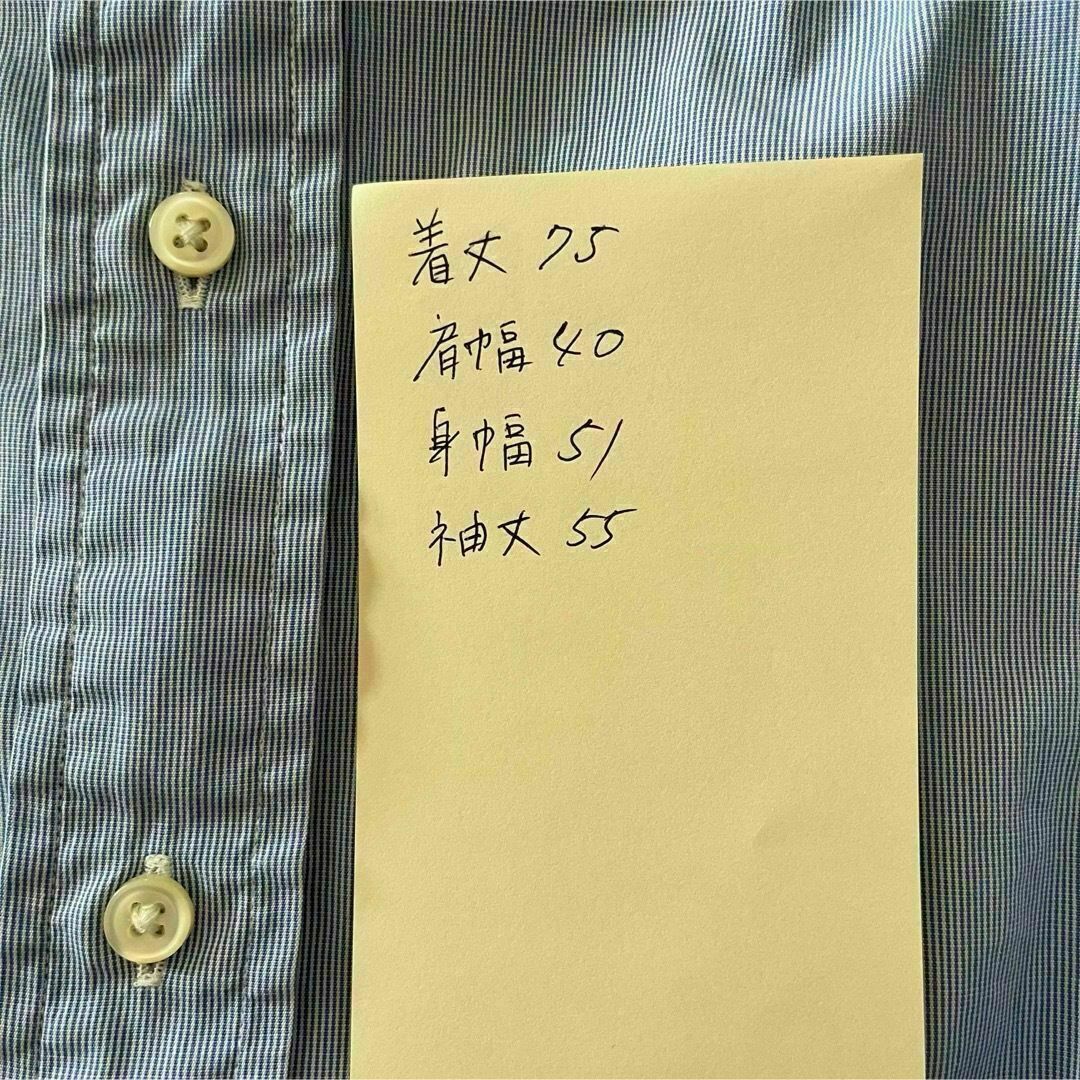 着丈 75
肩幅 40
身幅 51
袖丈 55